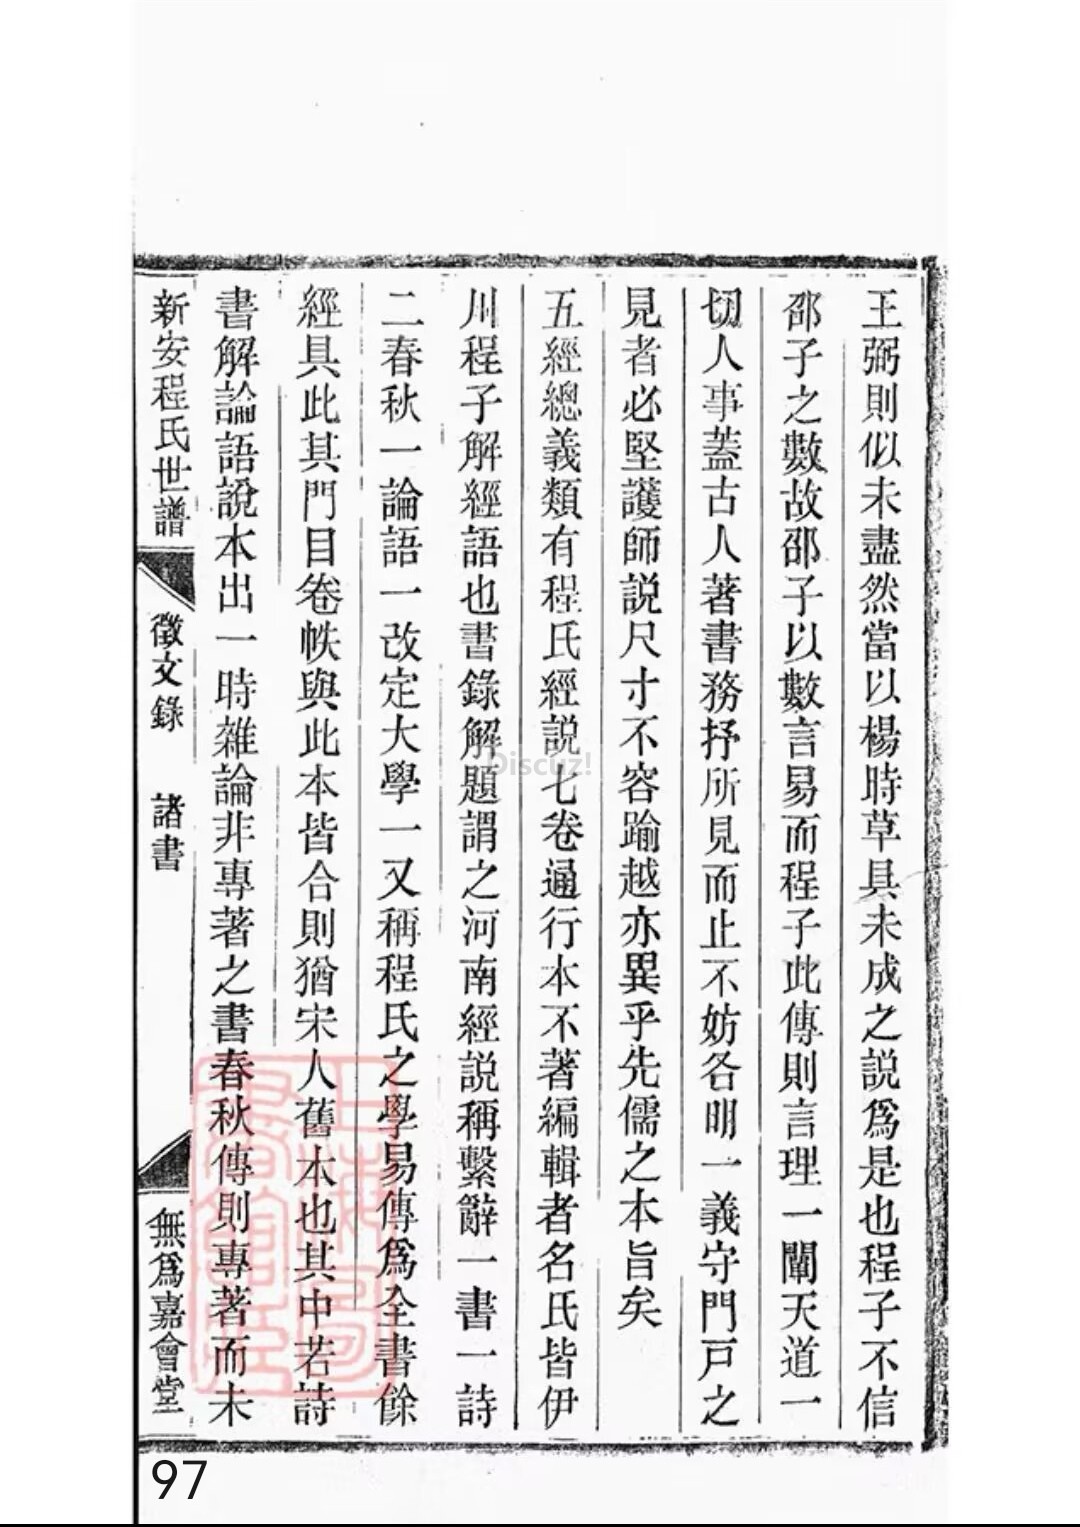 王弼則似未盡然當以楊時草具未成之說爲是也程子不信
邵子之數故邵子以數言易而程子此傳則言理一闡天道一
切人事蓋古人著書務抒所見而止不妨各明一義守門戸之
見者必堅護師說尺寸不容踰越亦異乎先儒之本旨矣
五經總義類有程氏經說七卷通行本不著編輯者名氏皆伊
川程子解經語也書錄解題謂之河南經說稱繫辭一書一詩
二春秋一論語一改定大學一又稱程氏之學易傳爲全書餘
經具此其門目卷帙與此本皆合則猶宋人舊本也其中若詩
書解論語說本出一時雜論非專著之書春秋傳則專著而未
新安程氏世譜
徵文錄
諸書
無爲嘉會堂
上海圖書館藏
Discuz!
97